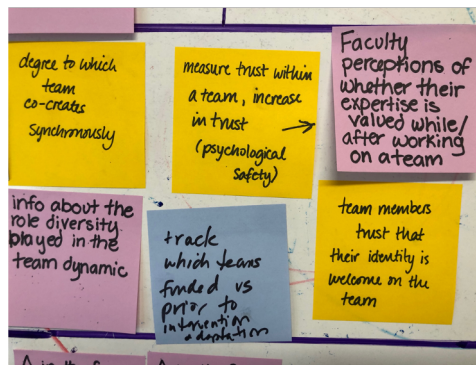 degree to which
team
co-creates
synchronously
measure trust within
a team, increase
in trust
(psychological
safety)
Faculty
perceptions of
whether their
expertise is
valued while/
after working
on a team
info about the
role diversity
played in the
team dynamic
track
which teams
funded vs
prior to
intervention
adaptation
team members
trust that
their identity is
welcome on the
team